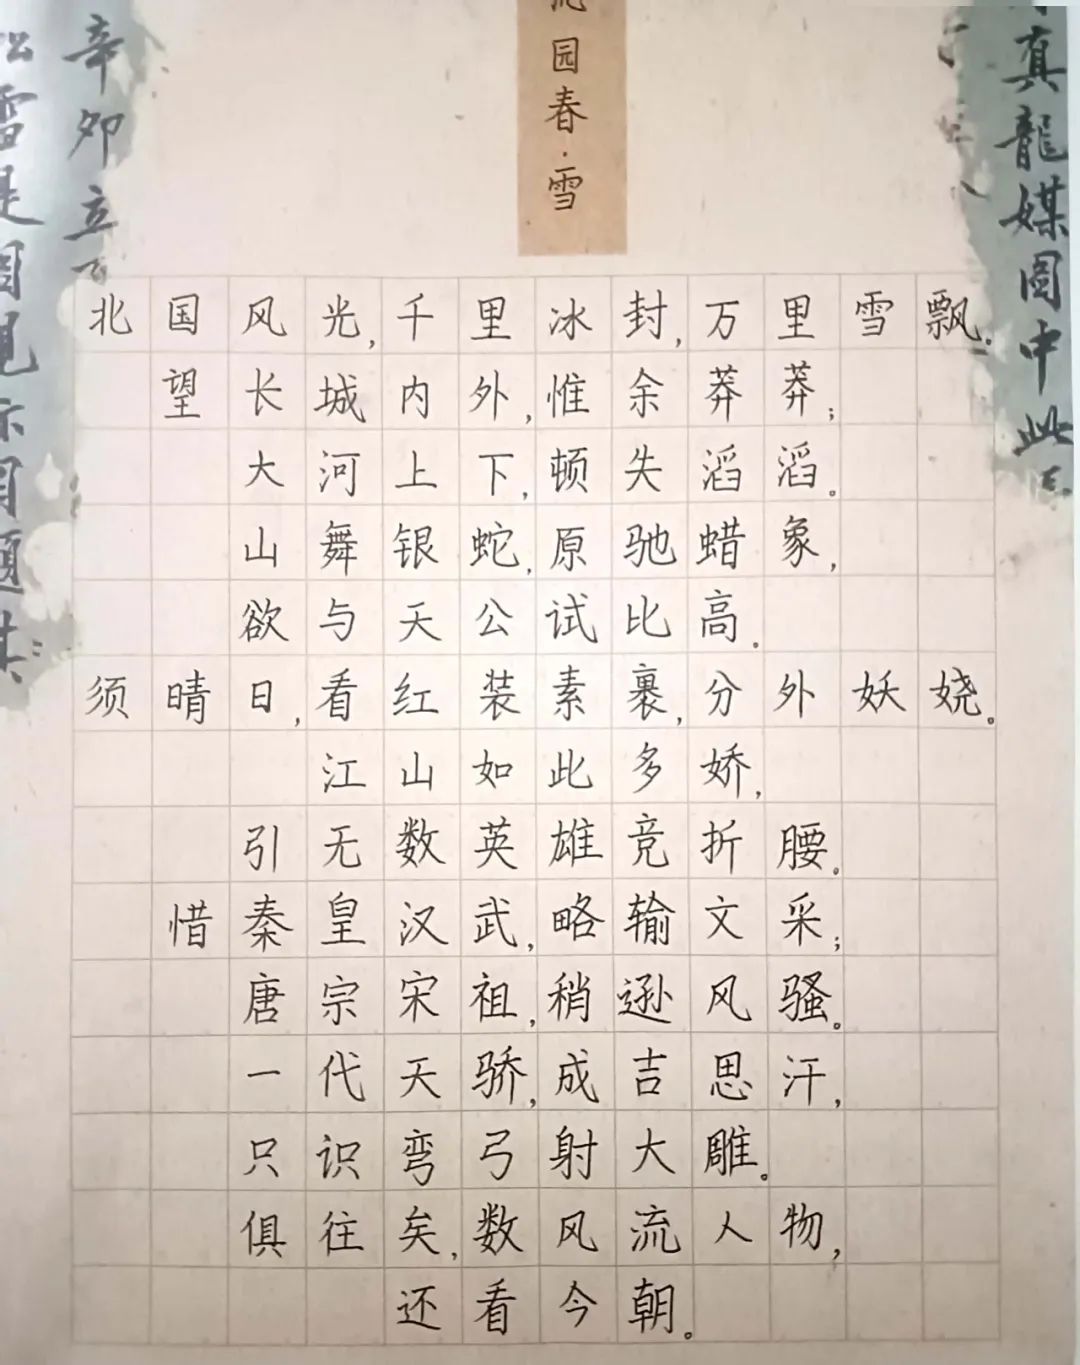 园春·雪
北国风光,千里冰封,万里雪飘。
望长城内外,惟余莽莽;
大河上下,顿失滔滔。
山舞银蛇,原驰蜡象,
欲与天公试比高。
须晴日,看红装素裹,分外妖娆。
江山如此多娇,
引无数英雄竞折腰。
惜秦皇汉武,略输文采;
唐宗宋祖,稍逊风骚。
一代天骄,成吉思汗,
只识弯弓射大雕。
俱往矣,数风流人物,
还看今朝。
真龍媒圖中此
辛卯立
雪是圖見亦同題其